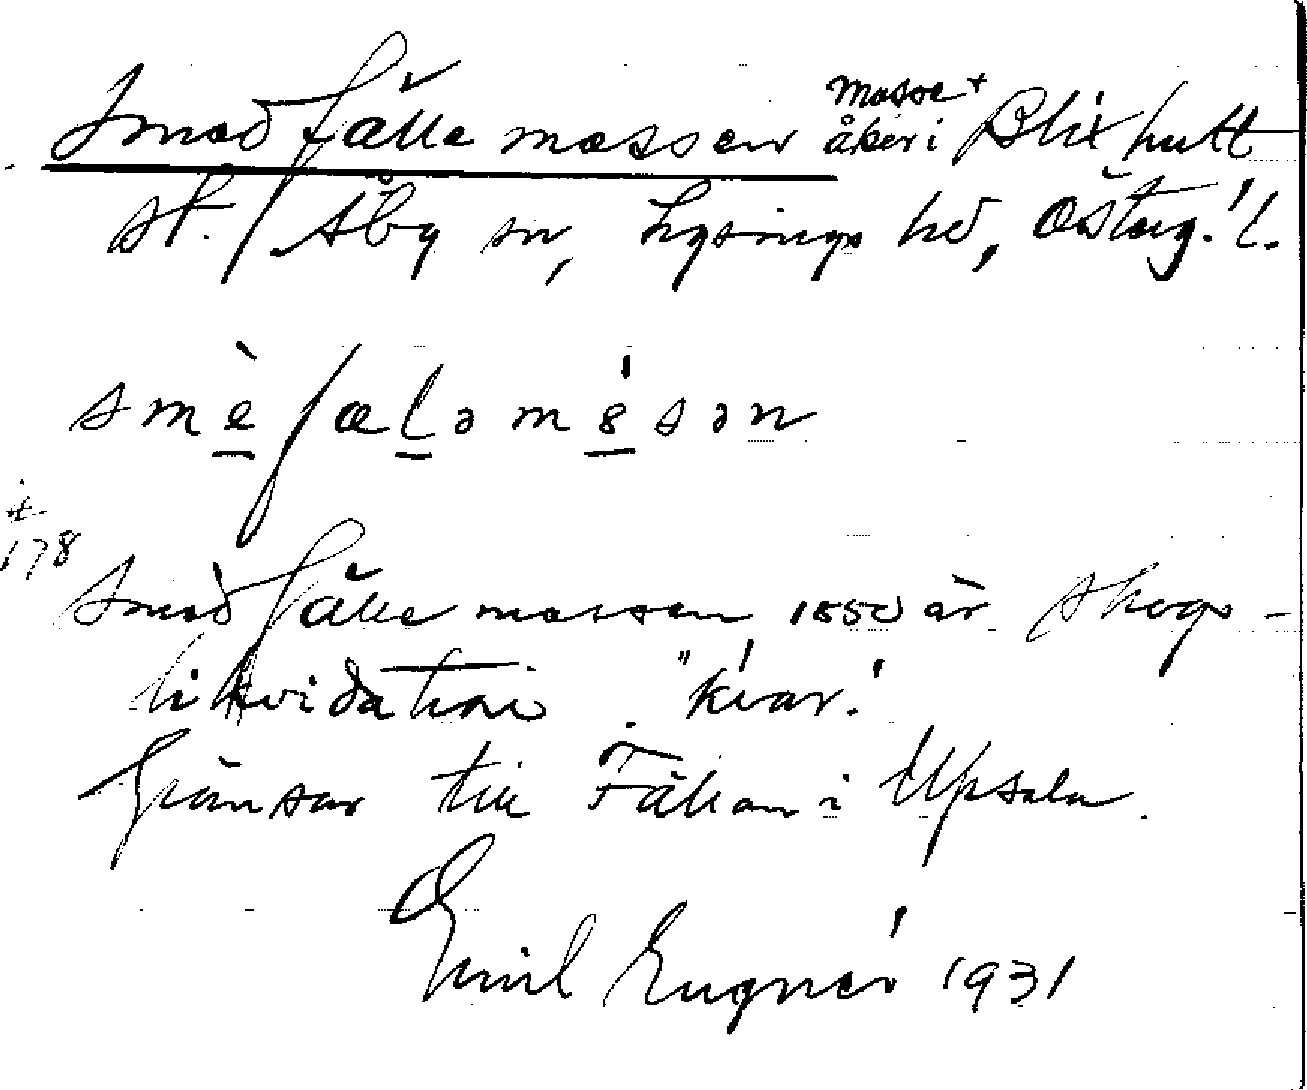 Smedfällemossen mosse + åker i Blixhult
st. / Åby sn, Lysings hd, Östergl.
smèfæləmósən
it
178
Smedfällemossen 1850 är skogs-
likvidation "kvar".
Gränsar till Fällan i Upsala.
Emil Lugnér 1931